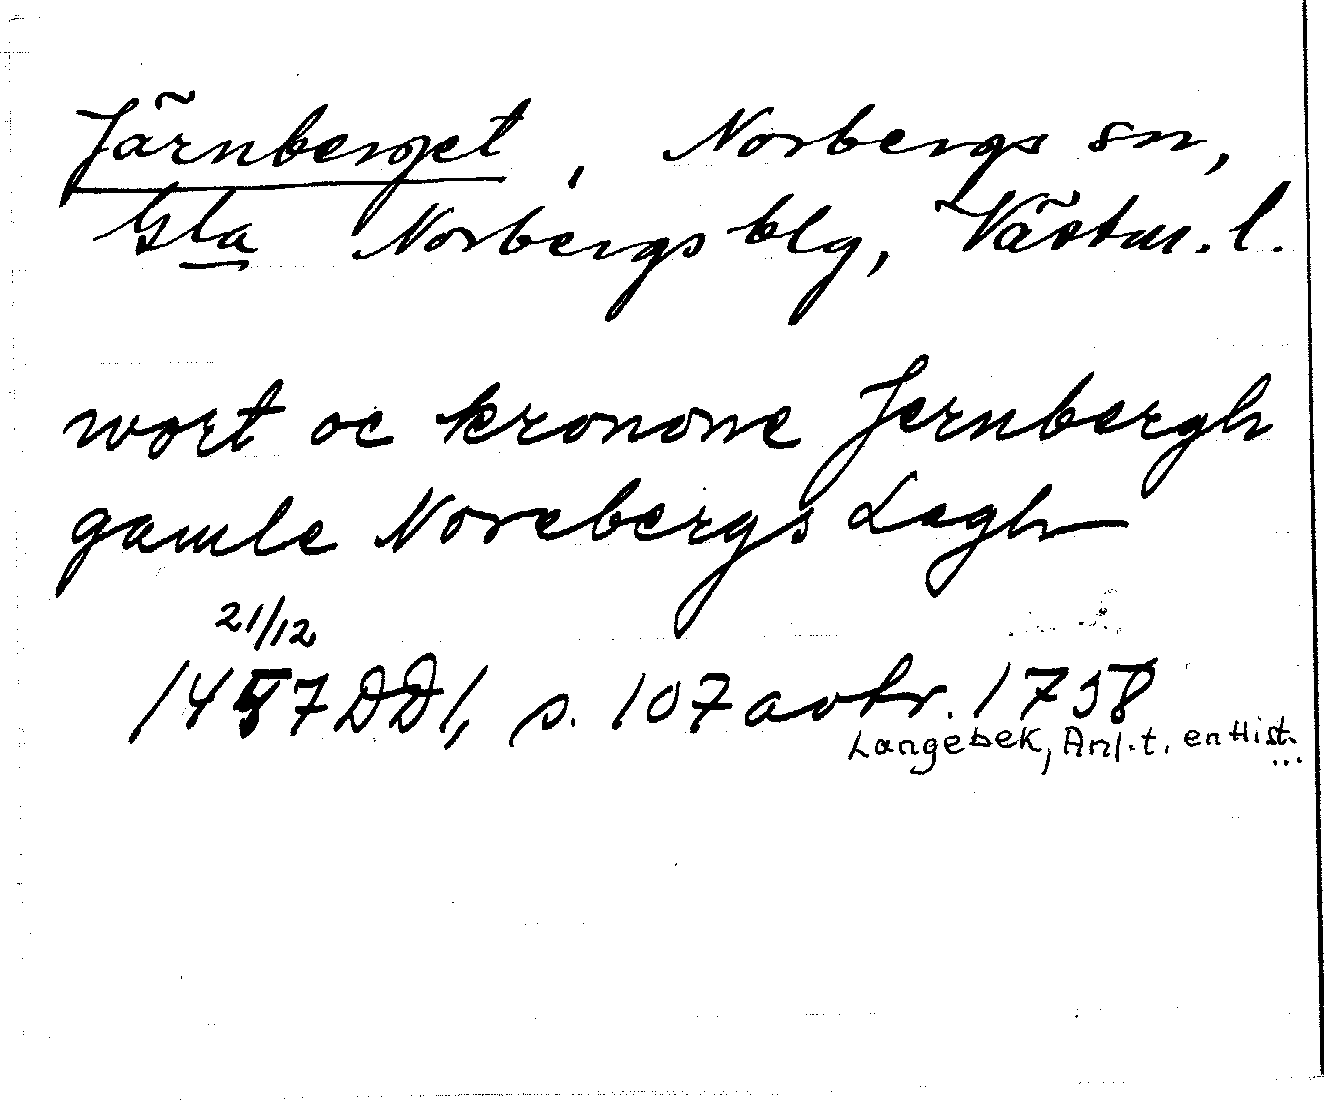 Järnberget, Norbergs sn,
Gla Norbergs blg, Västm. l.
wort oc kronone Jernbergh
gamle Norebergs Lagh
21/12
1457 DD1, s. 107 avtr. 1758
Langebek, Anl. t. en Hist. ...